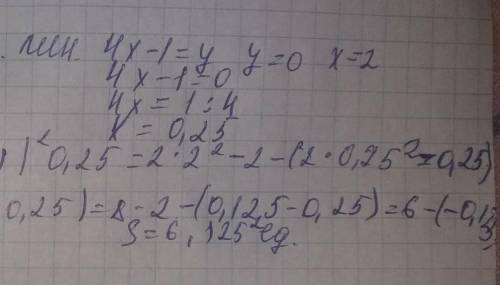 4x-1=y y=0 x=2
4x-1=0
4x=1:4
x=0,25
)|² 0,25=2·2²-2-(2·0,25²-0,25)
0,25)=8-2-(0,125-0,25)=6-(-0,1
S=6,125 ²ед.